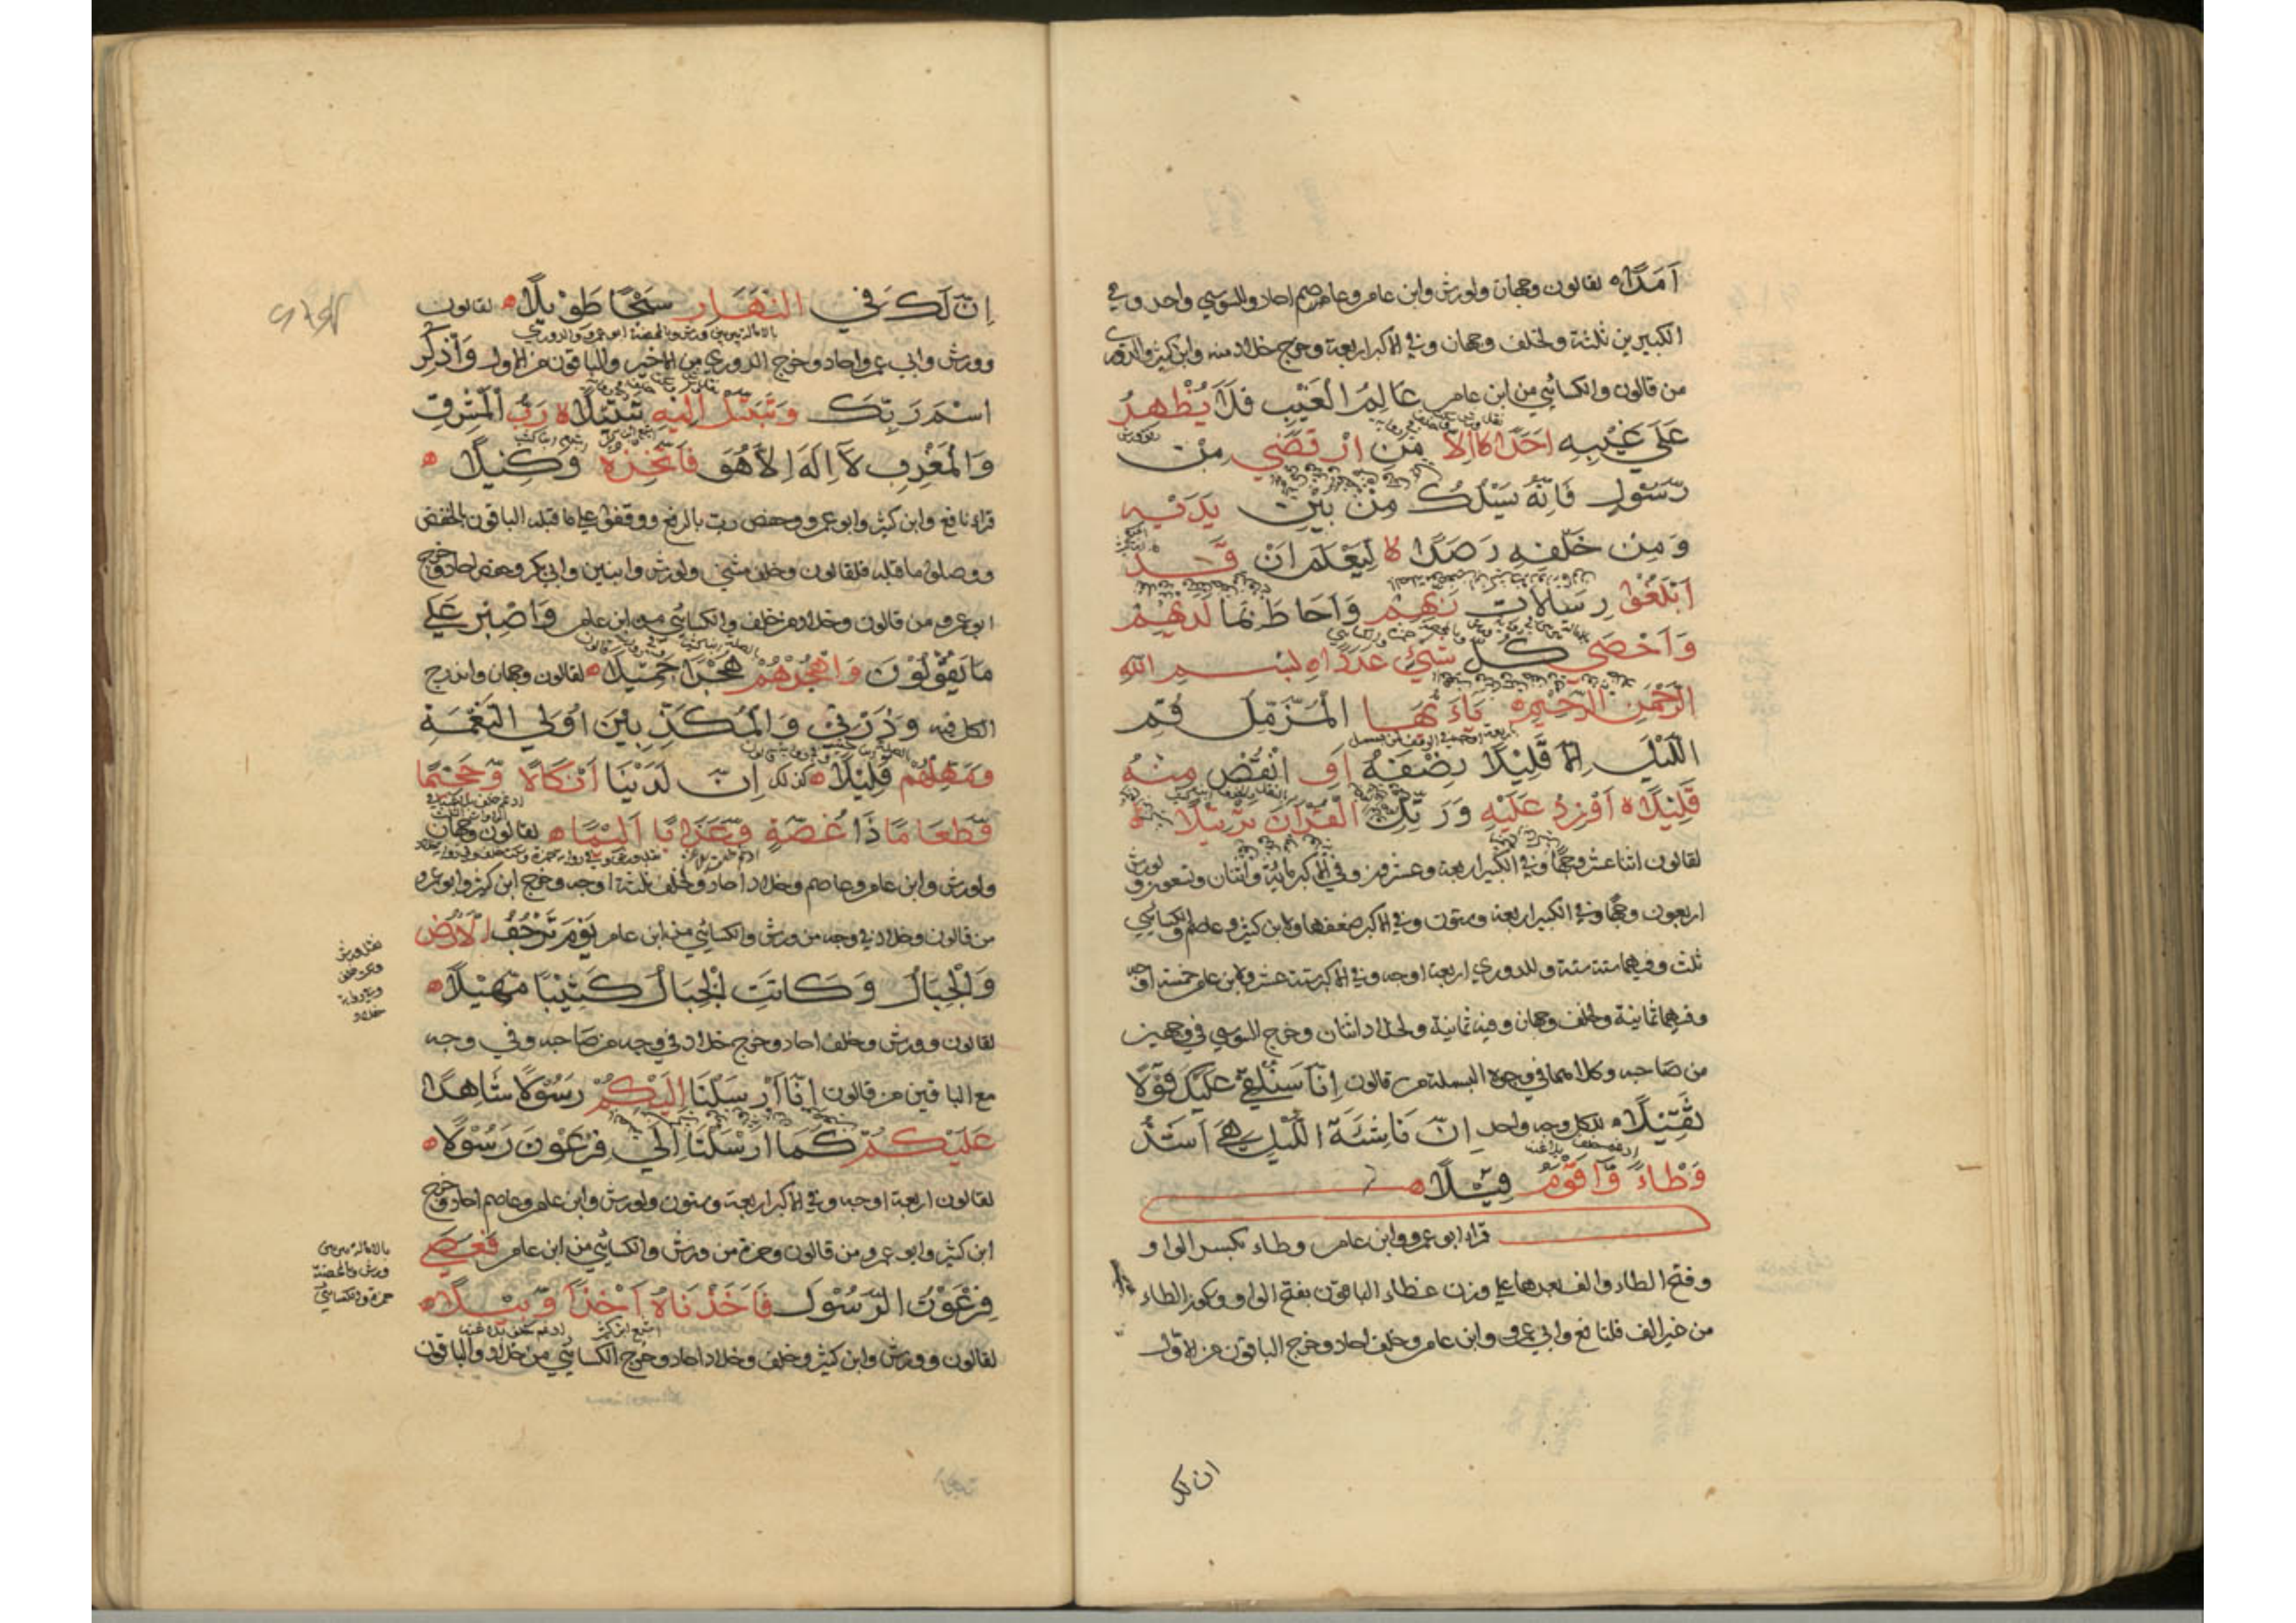 اَمَدًا لقالون وجهان ولورش وابن عامر وعاصم احاد وللسوسي واحد وفي
الكبيرين ثلثة ولخلف وجهان وفي الاكبر اربعة وخرج خلاد منه وابن كثير والدوري
من قالون والكسائي من ابن عامر عَالِمُ الْغَيْبِ فَلَا يُظْهِرُ
عَلَى غَيْبِهِ اَحَدًا اِلَّا مَنِ ارْتَضَى مِنْ
رَسُولٍ فَاِنَّهُ يَسْلُكُ مِنْ بَيْنِ يَدَيْهِ
وَمِنْ خَلْفِهِ رَصَدًا لا لِيَعْلَمَ اَنْ قَدْ
اَبْلَغُوا رِسَالَاتِ رَبِّهِمْ وَاَحَاطَ بِمَا لَدَيْهِمْ
وَاَحْصَى كُلَّ شَيْءٍ عَدَدًا بِسْمِ اللهِ
الرَّحْمَنِ الرَّحِيمِ يَاءَيُّهَا الْمُزَّمِّلُ قُمِ
اللَّيْلَ اِلَّا قَلِيْلًا نِصْفَهُ اَوِ انْقُصْ مِنْهُ
قَلِيْلًا اَوْ زِدْ عَلَيْهِ وَرَتِّلِ الْقُرْآنَ تَرْتِيْلًا
لقالون اثنا عشر وجها وفي الكبير اربعة وعشرون وفي الاكبر مائة واثنان وتسعون ولورش
اربعون وجها وفي الكبير اربعة وستون وفي الاكبر ضعفها ولابن كثير وعاصم والكسائي
ثلث وفيهما ستة ستة وللدوري اربعة اوجه وفي الاكبر ستة عشر ولابن عامر خمسة اوجه
وفيهما ثمانية ولخلف وجهان وفيه ثمانية ولخلاد اثنان وخرج السوسي في وجهين
من صاحبه وكلاهما في وجوه البسملة من قالون اِنَّا سَنُلْقِيْ عَلَيْكَ قَوْلًا
ثَقِيْلًا للكل وجه واحد اِنَّ نَاشِئَةَ اللَّيْلِ هِيَ اَشَدُّ
وَطْاءً وَاَقْوَمُ قِيْلًا
قراء ابو عمرو وابن عامر وطاء بكسر الواو
وفتح الطاء والف بعدها على وزن عطاء الباقون بفتح الواو وسكون الطاء
من غير الف فلنافع وابي عمرو وابن عامر وخلف احاد وخرج الباقون من الاول
ان لك
اِنَّ لَكَ فِي النَّهَارِ سَبْحًا طَوِيْلًا لقالون
وورش وابي عمرو احاد وخرج الدوري من الاخير والباقون من الاول وَاذْكُرِ
اسْمَ رَبِّكَ وَتَبَتَّلْ اِلَيْهِ تَبْتِيْلًا رَبُّ الْمَشْرِقِ
وَالْمَغْرِبِ لَا اِلَهَ اِلَّا هُوَ فَاتَّخِذْهُ وَكِيْلًا
قراء نافع وابن كثير وابو عمرو وحفص رب بالرفع ووقفوا على ما قبله الباقون بالخفض
ووصلوا ما قبله فلقالون وخلف مثنى ولورش وابنين وابي بكر وحفص احاد وخرج
ابو عمرو من قالون وخلاد من خلف والكسائي من ابن عامر وَاصْبِرْ عَلَى
مَا يَقُوْلُوْنَ وَاهْجُرْهُمْ هَجْرًا جَمِيْلًا لقالون وجهان واندرج
الكل فيه وَذَرْنِيْ وَالْمُكَذِّبِيْنَ اُوْلِي النَّعْمَةِ
وَمَهِّلْهُمْ قَلِيْلًا كذلك اِنَّ لَدَيْنَا اَنْكَالًا وَجَحِيْمًا
وَطَعَامًا ذَا غُصَّةٍ وَعَذَابًا اَلِيْمًا لقالون وجهان
ولورش وابن عامر وعاصم وخلاد احاد ولخلف ثلثة اوجه وخرج ابن كثير وابو عمرو
من قالون وخلاد في وجه من ورش والكسائي من ابن عامر يَوْمَ تَرْجُفُ الْاَرْضُ
وَالْجِبَالُ وَكَانَتِ الْجِبَالُ كَثِيْبًا مَهِيْلًا
لقالون وورش وخلف احاد وخرج خلاد في وجه من صاحبه وفي وجه
مع الباقين من قالون اِنَّا اَرْسَلْنَا اِلَيْكُمْ رَسُوْلًا شَاهِدًا
عَلَيْكُمْ كَمَا اَرْسَلْنَا اِلَى فِرْعَوْنَ رَسُوْلًا
لقالون اربعة اوجه وفي الاكبر اربعة وستون ولورش وابن عامر وعاصم احاد وخرج
ابن كثير وابو عمرو من قالون وحمزة من ورش والكسائي من ابن عامر فَعَصَى
فِرْعَوْنُ الرَّسُوْلَ فَاَخَذْنَاهُ اَخْذًا وَبِيْلًا
لقالون وورش وابن كثير وخلف وخلاد احاد وخرج الكسائي من خلاد والباقون
نقل ورش
وسكت خلف
وفي رواية
خلاد
بالامالة بين بين
ورش وبالمحضة
حمزة والكسائي